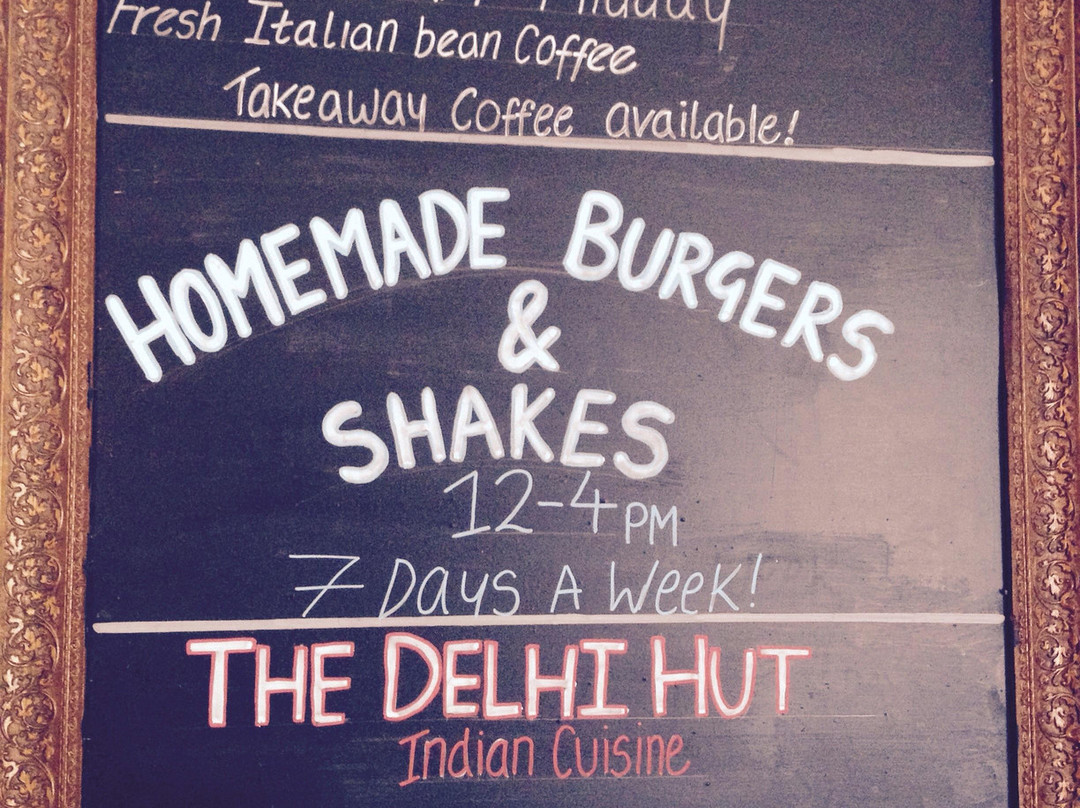 Fresh Italian bean Coffee
Takeaway Coffee available!
HOMEMADE BURGERS
&
SHAKES
12-4 PM
7 Days A Week!
THE DELHI HUT
Indian Cuisine